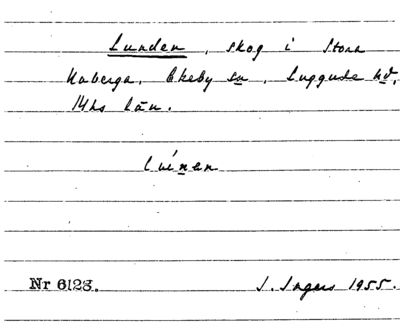 Lunden, skog i Stora
Uaberga, Ekeby sn, Luggude hd,
Mhs län.
Nr 6123.
I. Ingers 1955.